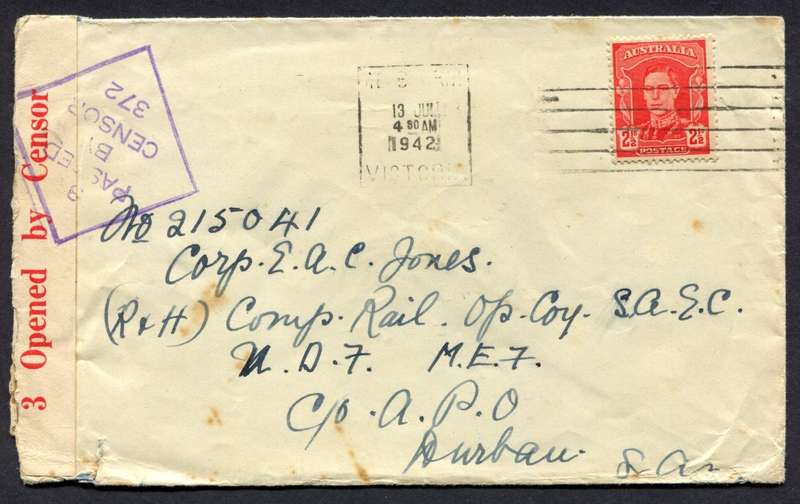 3 Opened by Censor
PASSED
BY
CENSOR
372
13 JUN
4 30 AM
1942
VICTORIA
AUSTRALIA
2½ 2½
POSTAGE
No 215041
Corp. E. A. C. Jones.
(R & H) Comp. Rail. Op. Coy. S.A.E.C.
U.D.F. M.E.F.
C/o. A.P.O
Durban. S. A.